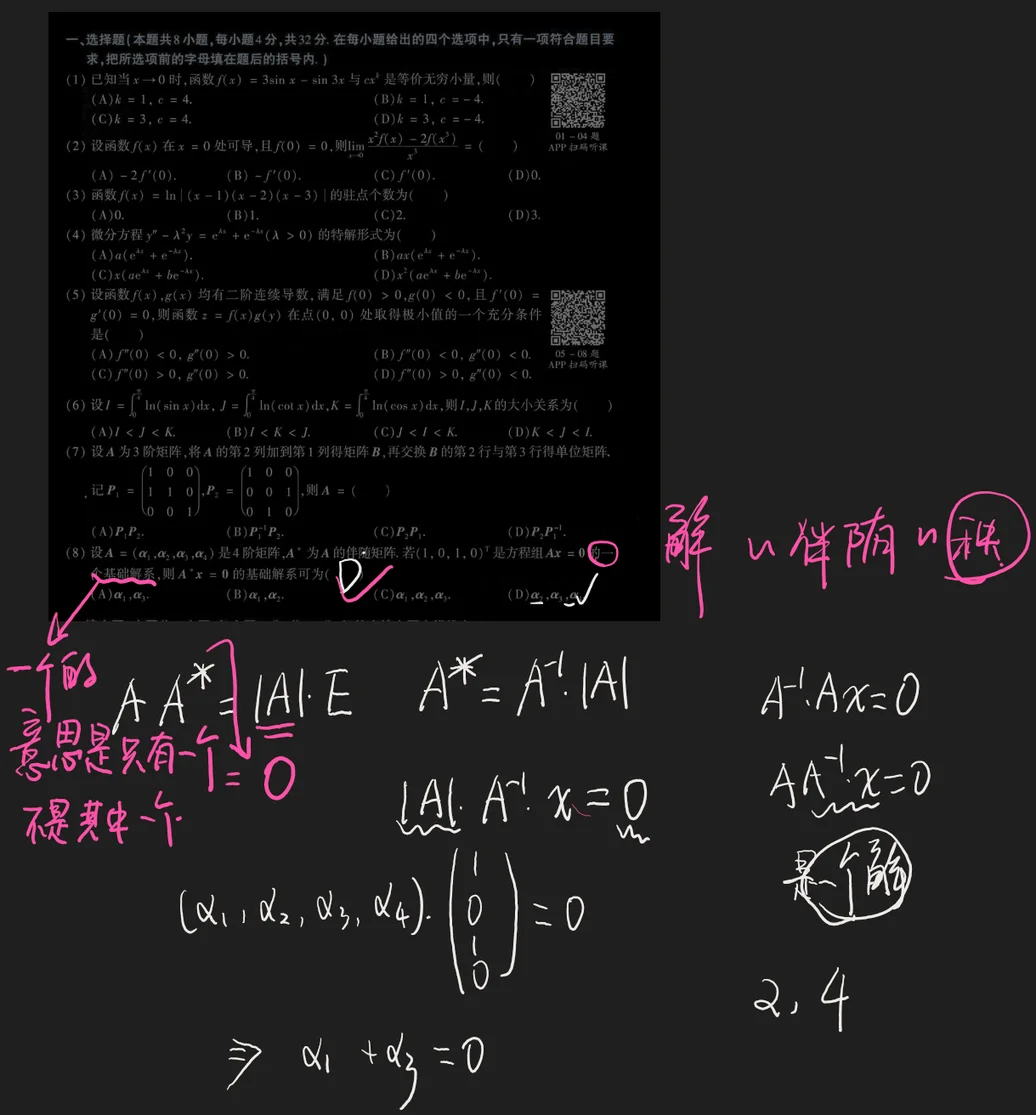 一、选择题(本题共8小题,每小题4分,共32分. 在每小题给出的四个选项中,只有一项符合题目要
求,把所选项前的字母填在题后的括号内. )
(1) 已知当 x → 0 时,函数 f(x) = 3sin x − sin 3x 与 cxᵏ 是等价无穷小量,则( )
(A) k = 1, c = 4. (B) k = 1, c = − 4.
(C) k = 3, c = 4. (D) k = 3, c = − 4.
01 − 04 题
APP 扫码听课
(2) 设函数 f(x) 在 x = 0 处可导,且 f(0) = 0,则 lim_{x→0} (x²f(x) − 2f(x³))/x³ = ( )
(A) − 2f′(0). (B) − f′(0). (C) f′(0). (D) 0.
(3) 函数 f(x) = ln | (x − 1)(x − 2)(x − 3) | 的驻点个数为( )
(A) 0. (B) 1. (C) 2. (D) 3.
(4) 微分方程 y″ − λ²y = e^{λx} + e^{−λx} (λ > 0) 的特解形式为( )
(A) a(e^{λx} + e^{−λx}). (B) ax(e^{λx} + e^{−λx}).
(C) x(ae^{λx} + be^{−λx}). (D) x²(ae^{λx} + be^{−λx}).
(5) 设函数 f(x),g(x) 均有二阶连续导数, 满足 f(0) > 0,g(0) < 0, 且 f′(0) =
g′(0) = 0,则函数 z = f(x)g(y) 在点(0, 0) 处取得极小值的一个充分条件
是( )
(A) f″(0) < 0, g″(0) > 0. (B) f″(0) < 0, g″(0) < 0.
(C) f″(0) > 0, g″(0) > 0. (D) f″(0) > 0, g″(0) < 0.
05 − 08 题
APP 扫码听课
(6) 设 I = ∫₀^{π/4} ln(sin x)dx, J = ∫₀^{π/4} ln(cot x)dx, K = ∫₀^{π/4} ln(cos x)dx,则 I,J,K 的大小关系为( )
(A) I < J < K. (B) I < K < J. (C) J < I < K. (D) K < J < I.
(7) 设 A 为 3 阶矩阵,将 A 的第 2 列加到第 1 列得矩阵 B,再交换 B 的第 2 行与第 3 行得单位矩阵.
记 P₁ = (1 0 0; 1 1 0; 0 0 1), P₂ = (1 0 0; 0 0 1; 0 1 0), 则 A = ( )
(A) P₁P₂. (B) P₁⁻¹P₂. (C) P₂P₁. (D) P₂P₁⁻¹.
(8) 设 A = (α₁,α₂,α₃,α₄) 是 4 阶矩阵,A* 为 A 的伴随矩阵. 若(1, 0, 1, 0)ᵀ 是方程组 Ax = 0 的一
个基础解系,则 A*x = 0 的基础解系可为( D
(A) α₁,α₃. (B) α₁,α₂. (C) α₁,α₂,α₃. (D) α₂,α₃,α₄
解 伴随 秩
一个的
意思是只有一个
不是其中一个
A A* = |A|·E
= 0
A* = A⁻¹·|A|
|A|·A⁻¹·x = 0
(α₁, α₂, α₃, α₄)·(1 0 1 0) = 0
⇒ α₁ + α₃ = 0
A⁻¹·Ax = 0
AA⁻¹·x = 0
是一个解
2, 4